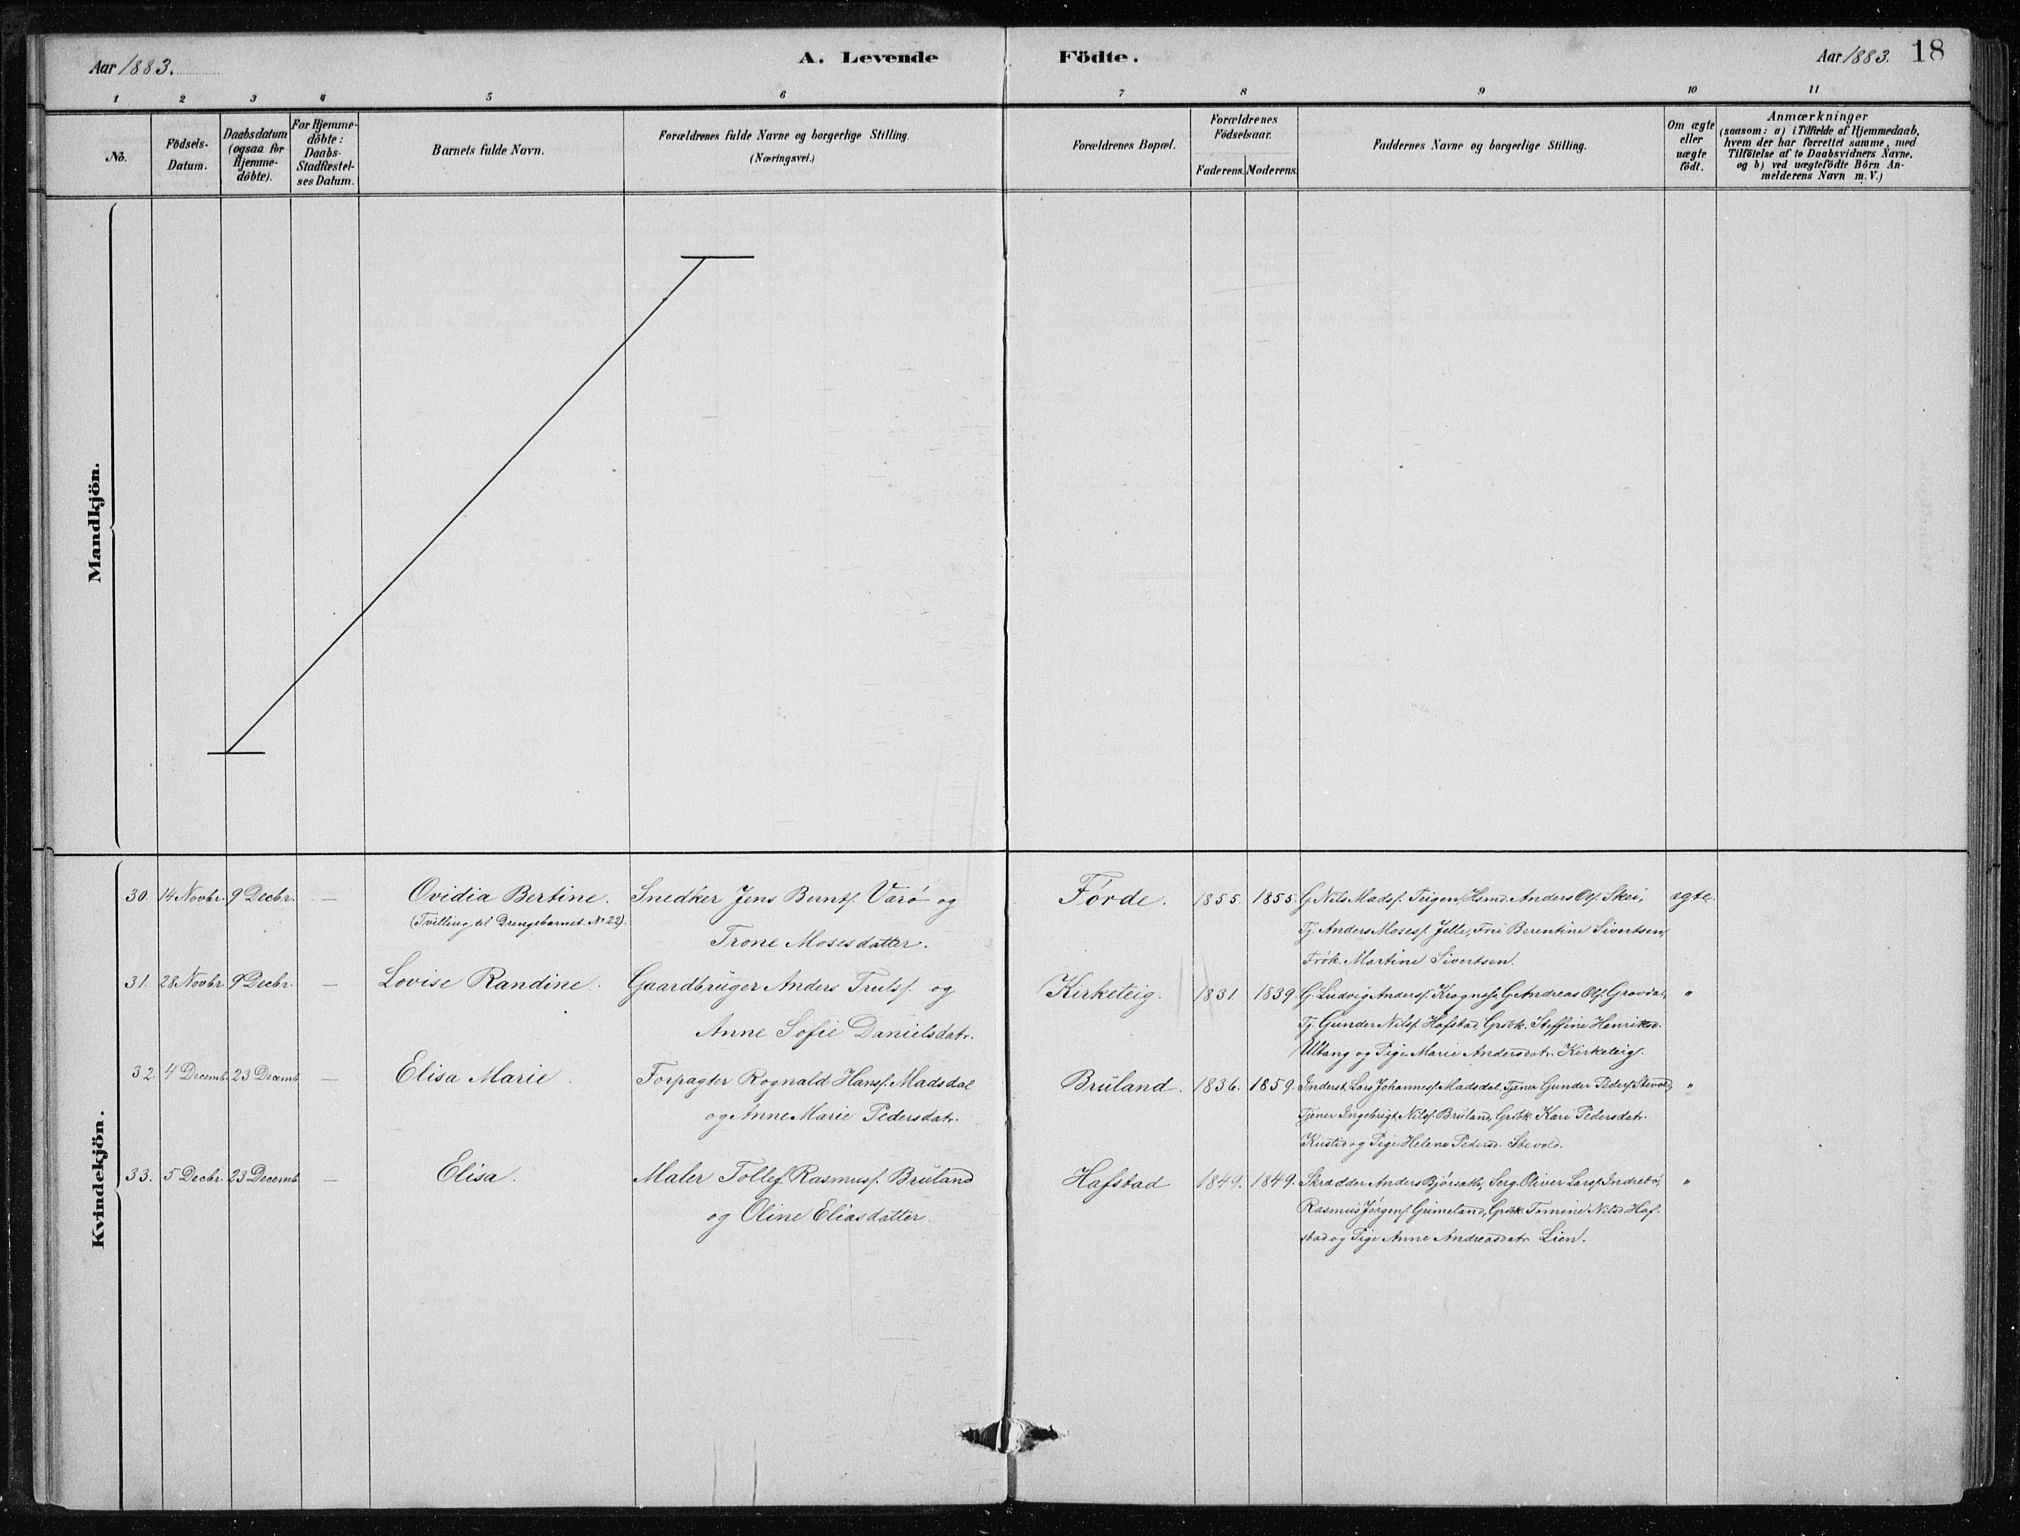 Aar 1883.
A. Levende Födte.
Aar 1883. 18
1 2 3 4 5 6 7 8 9 10 11
No.
Födsels-
Datum.
Daabsdatum
(ogsaa for
Hjemme-
döbte).
For Hjemme-
döbte:
Daabs-
Stadfæstel-
ses Datum.
Barnets fulde Navn.
Forældrenes fulde Navne og borgerlige Stilling.
(Næringsvei.)
Forældrenes Bopæl.
Forældrenes
Födselsaar.
Faderens. Moderens.
Faddernes Navne og borgerlige Stilling.
Om ægte
eller
uægte
födt.
Anmærkninger
(saasom: a) i Tilfælde af Hjemmedaab,
hvem der har forrettet samme, med
Tilföielse af to Daabsvidners Navne,
og b) ved uægtefödte Börn An-
melderens Navn m. V.)
Mandkjön.
Kvindekjön.
30. 14 Novbr. 9 Decbr. — Ovidia Bertine. Snedker Jens Bernts. Værø og Førde. 1855 1855. G. Nils Madss. Teigen, Hsmd. Anders Ols. Skei, ægte.
(Tvilling til Drengebarnet No 22). Trone Mosesdatter. Tj. Anders Moses. Jelle, Frø. Berentine Sivertsen,
Frøk. Martine Sivertsen.
31. 28 Novbr. 9 Decbr. — Lovise Randine. Gaardbruger Anders Truls. og Kirketeig. 1831. 1839. G. Ludvig Anders. G. Andreas Ols. Grovdal, "
Anne Sofie Danielsdatr. Tj. Gunder Nils. Hafstad, Grbk. Steffine Henriksd.
Ultang og Pige Marie Andersdatr. Kirketeig.
32. 4 Decemb. 23 Decemb. — Elisa Marie. Forpagter Rognald Hans. Madsdal Bruland. 1836. 1859. Inderst Lars Johannes. Madsdal, Tjener Gunder Peders. "
og Anne Marie Pedersdatr. Tjener Ingebrigt Nils. Bruland, Grbk. Kari Pedersdatr.
og Pige Helene Pedersd.
33. 5 Decbr. 23 Decemb. — Elisa. Maler Tollef Rasmus. Bruland Hafstad 1849. 1849. Skrædder Anders Serg. Oliver Lars. Indrebø, "
og Oline Eliasdatter. Rasmus Jørgens. Grimeland, Grbk. Tomine Nilsd. Haf-
stad og Pige Anne Andreasdatr. Lien.